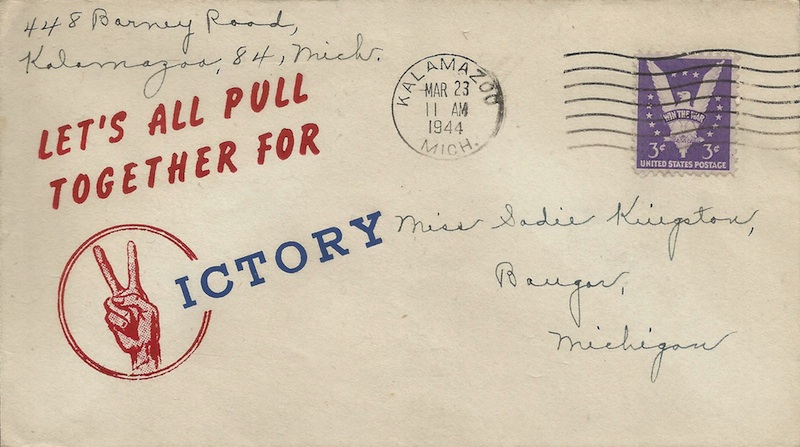 448 Barney Road,
Kalamazoo, 84, Mich.
LET'S ALL PULL
TOGETHER FOR
ICTORY
KALAMAZOO
MAR 23
11 AM
1944
MICH.
WIN THE WAR
3¢ 3¢
UNITED STATES POSTAGE
Miss Sadie Kingston,
Bangor,
Michigan